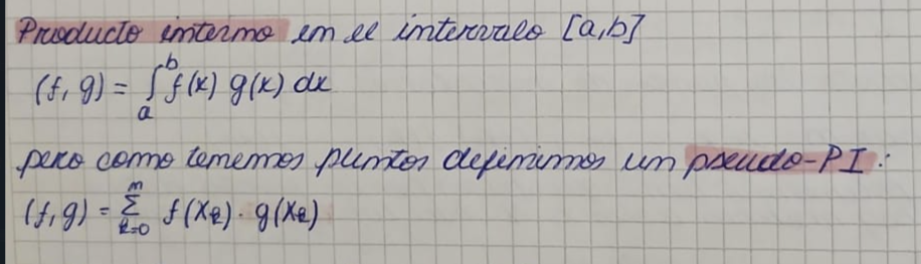 Producto interno en el intervalo [a,b]
(f,g) = ∫_a^b f(x) g(x) dx
pero como tenemos puntos definimos un pseudo-PI:
(f,g) = Σ_{k=0}^m f(x_k) · g(x_k)